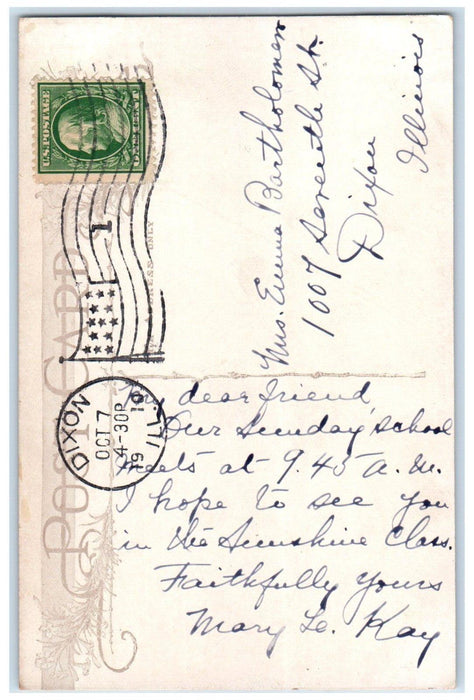 U.S. POSTAGE
ONE CENT
1
POST CARD
DIXON
OCT 7
4-30P
19 10
ILL.
Mrs. Emma Bartholomew
1007 Seventh St.
Dixon
Illinois
My dear friend,
Our Sunday, school
meets at 9.45 a.m.
I hope to see you
in the Sunshine Class.
Faithfully yours
Mary Le. Kay